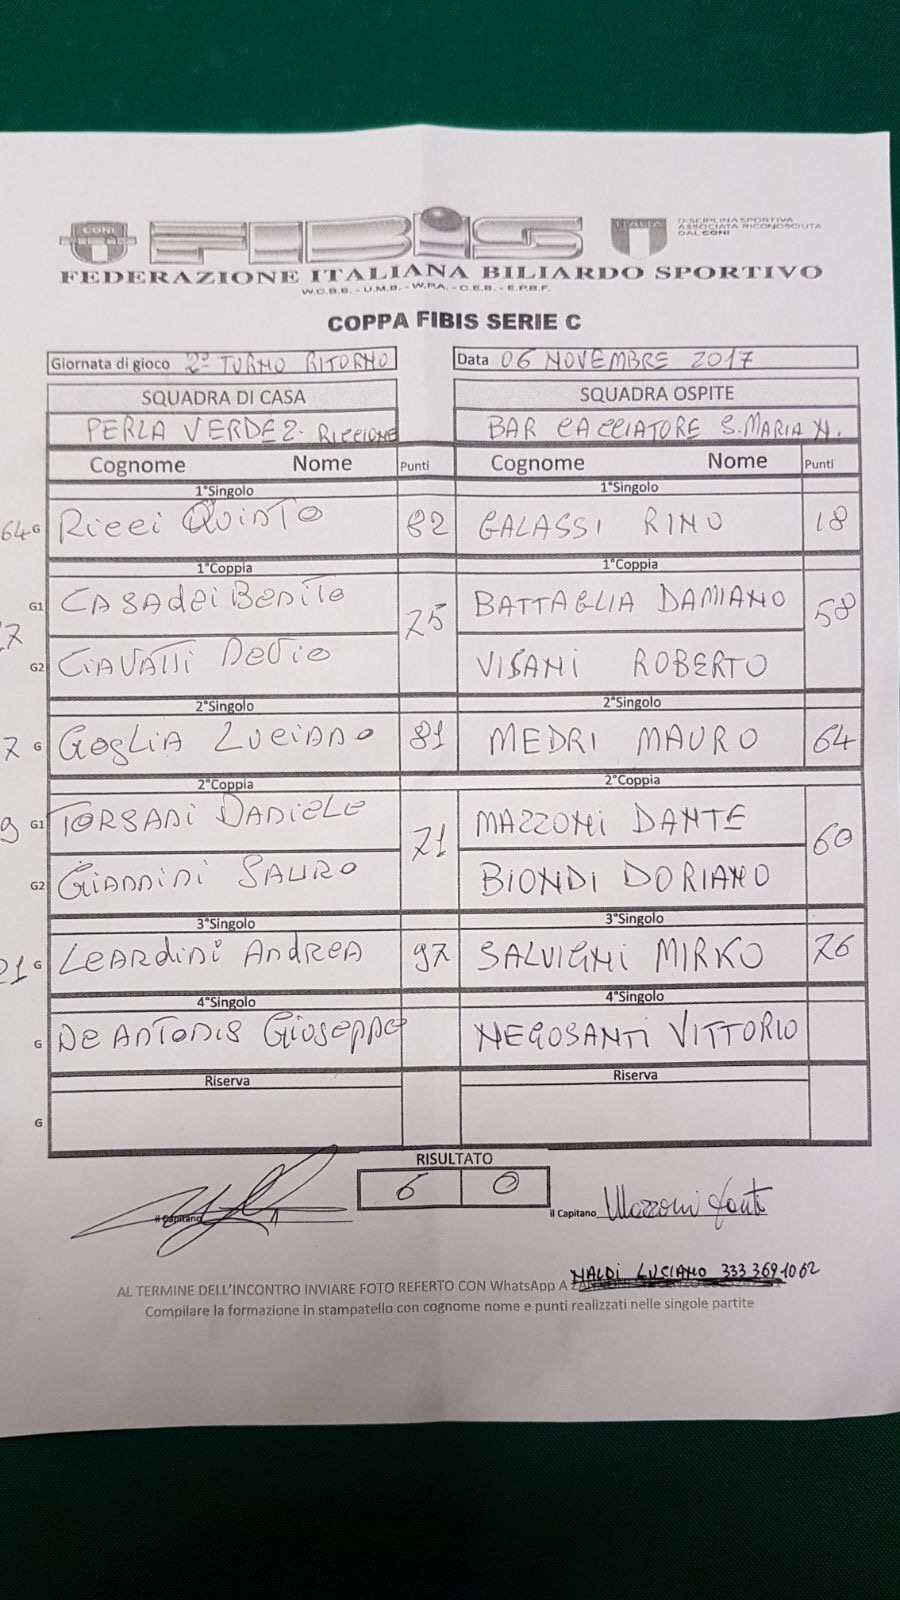 CONI
FIBIS
ITALIA
DISCIPLINA SPORTIVA
ASSOCIATA RICONOSCIUTA
DAL CONI
FEDERAZIONE ITALIANA BILIARDO SPORTIVO
W.C.B.S. - U.M.B. - W.P.A. - C.E.B. - E.P.B.F.
COPPA FIBIS SERIE C
Giornata di gioco 2° TURNO RITORNO Data 06 NOVEMBRE 2017
SQUADRA DI CASA SQUADRA OSPITE
PERLA VERDE 2. RICCIONE BAR CACCIATORE S. MARIA N.
Cognome Nome Punti Cognome Nome Punti
1°Singolo 1°Singolo
64 G Ricci Quinto 82 GALASSI RINO 18
1°Coppia 1°Coppia
G1 CASAdei Benito 75 BATTAGLIA DAMIANO 58
7
G2 CIAVATTI Decio VISANI ROBERTO
2°Singolo 2°Singolo
7 G GogLIA LUCIANO 81 MEDRI MAURO 64
2°Coppia 2°Coppia
9 G1 TORSANI DANIELE 71 MAZZONI DANTE 60
G2 GIANNINI SAURO BIONDI DORIANO
3°Singolo 3°Singolo
21 G LeARdini AndREA 97 SALVIGNI MIRKO 76
4°Singolo 4°Singolo
G De ANTONIS Gioseppe NEGOSANTI VITTORIO
Riserva Riserva
G
RISULTATO
6 0
il Capitano il Capitano Mazzoni Dante
NALDI LUCIANO 333 3691062
AL TERMINE DELL'INCONTRO INVIARE FOTO REFERTO CON WhatsApp A
Compilare la formazione in stampatello con cognome nome e punti realizzati nelle singole partite